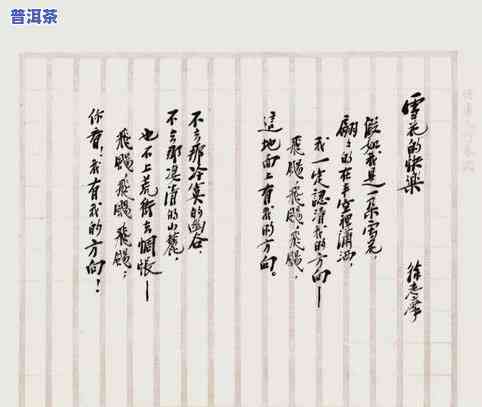 普洱茶
雪花的快樂
徐志摩
假如我是一朵雪花，
翩翩的在半空裡瀟洒，
我一定認清我的方向——
飛颺，飛颺，飛颺，
這地面上有我的方向。
不去那冷寞的幽谷，
不去那凄清的山麓，
也不上荒街去惆悵——
飛颺，飛颺，飛颺，
你看，我有我的方向！